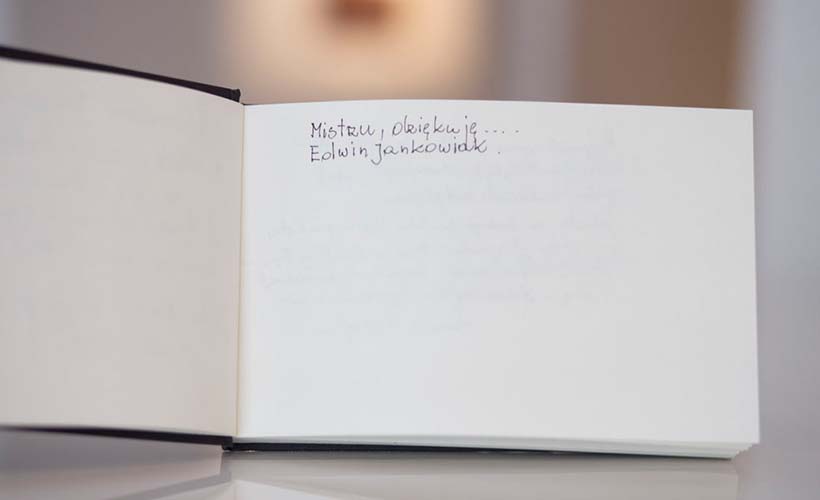 Mistrzu, dziękuję....
Edwin Jankowiak.